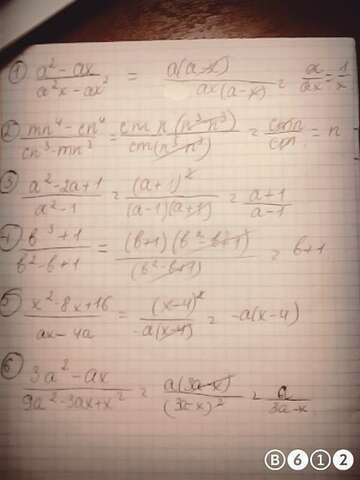 ① a² - ax / a²x - ax² = a(a-x) / ax(a-x) = a / ax = 1 / x
② mn⁴ - cn⁴ / cn³ - mn³
③ a² - 2a + 1 / a² - 1 = (a+1)² / (a-1)(a+1) = a+1 / a-1
④ b³ + 1 / b² - b + 1 = (b+1)(b² - b + 1) / (b² - b + 1) = b+1
⑤ x² - 8x + 16 / ax - 4a = (x-4)² / -a(x-4) = -a(x-4)
⑥ 3a² - ax / 9a² - 3ax + x² = a(3a-x) / (3a-x)² = a / 3a-x
B 6 1 2